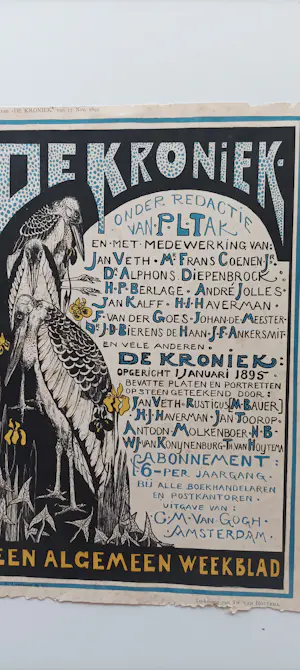 "DE KRONIEK" van 17 Nov. 1895
DE KRONIEK.
ONDER REDACTIE
VAN P.L.TAK
EN MET MEDEWERKING VAN:
JAN VETH. Mr FRANS COENEN Jr.
Dr ALPHONS DIEPENBROCK.
H.P. BERLAGE. ANDRÉ JOLLES.
JAN KALFF. H.J. HAVERMAN.
F. VAN DER GOES. JOHAN DE MEESTER.
Dr J.D. BIERENS DE HAAN. J.F. ANKERSMIT.
EN VELE ANDEREN.
DE KRONIEK:
OPGERICHT 1 JANUARI 1895.
BEVATTE PLATEN EN PORTRETTEN
OP STEEN GETEEKEND DOOR:
JAN VETH. RUSTICUS [M. BAUER]
H.J. HAVERMAN. JAN TOOROP.
ANTOON MOLKENBOER. N.B.
W.J. VAN KONIJNENBURG. TH. VAN HOYTEMA
ABONNEMENT:
f6.- PER JAARGANG.
BIJ ALLE BOEKHANDELAREN
EN POSTKANTOREN.
UITGAVE VAN:
C.M. VAN GOGH.
AMSTERDAM.
EEN ALGEMEEN WEEKBLAD